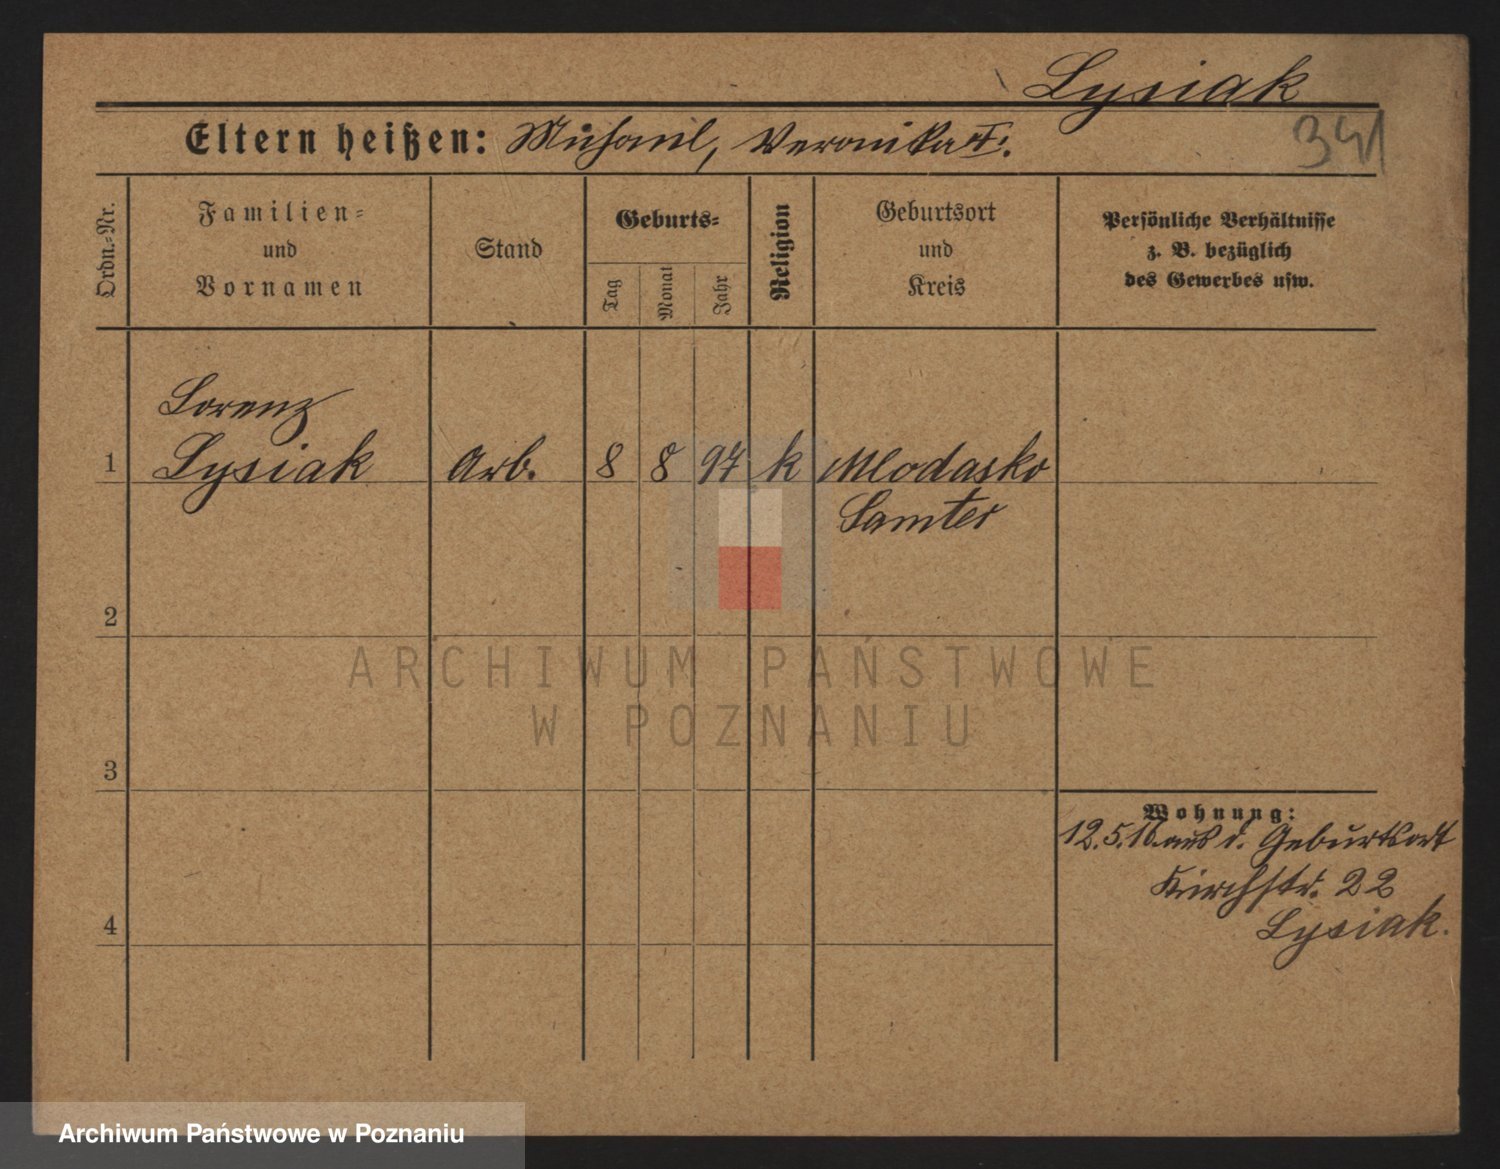 Lysiak
341
Eltern heißen: Michael, Veronika F.
Ordn.-Nr.
Familien-
und
Vornamen
Stand
Geburts-
Tag
Monat
Jahr
Religion
Geburtsort
und
Kreis
Persönliche Verhältnisse
z. B. bezüglich
des Gewerbes usw.
Lorenz
1 Lysiak Arb. 8 8 97 k Mlodasko
Samter
2
ARCHIWUM PAŃSTWOWE
W POZNANIU
3
Wohnung:
12.5.16 aus d. Geburtsort
Kirchstr. 22
Lysiak.
4
Archiwum Państwowe w Poznaniu